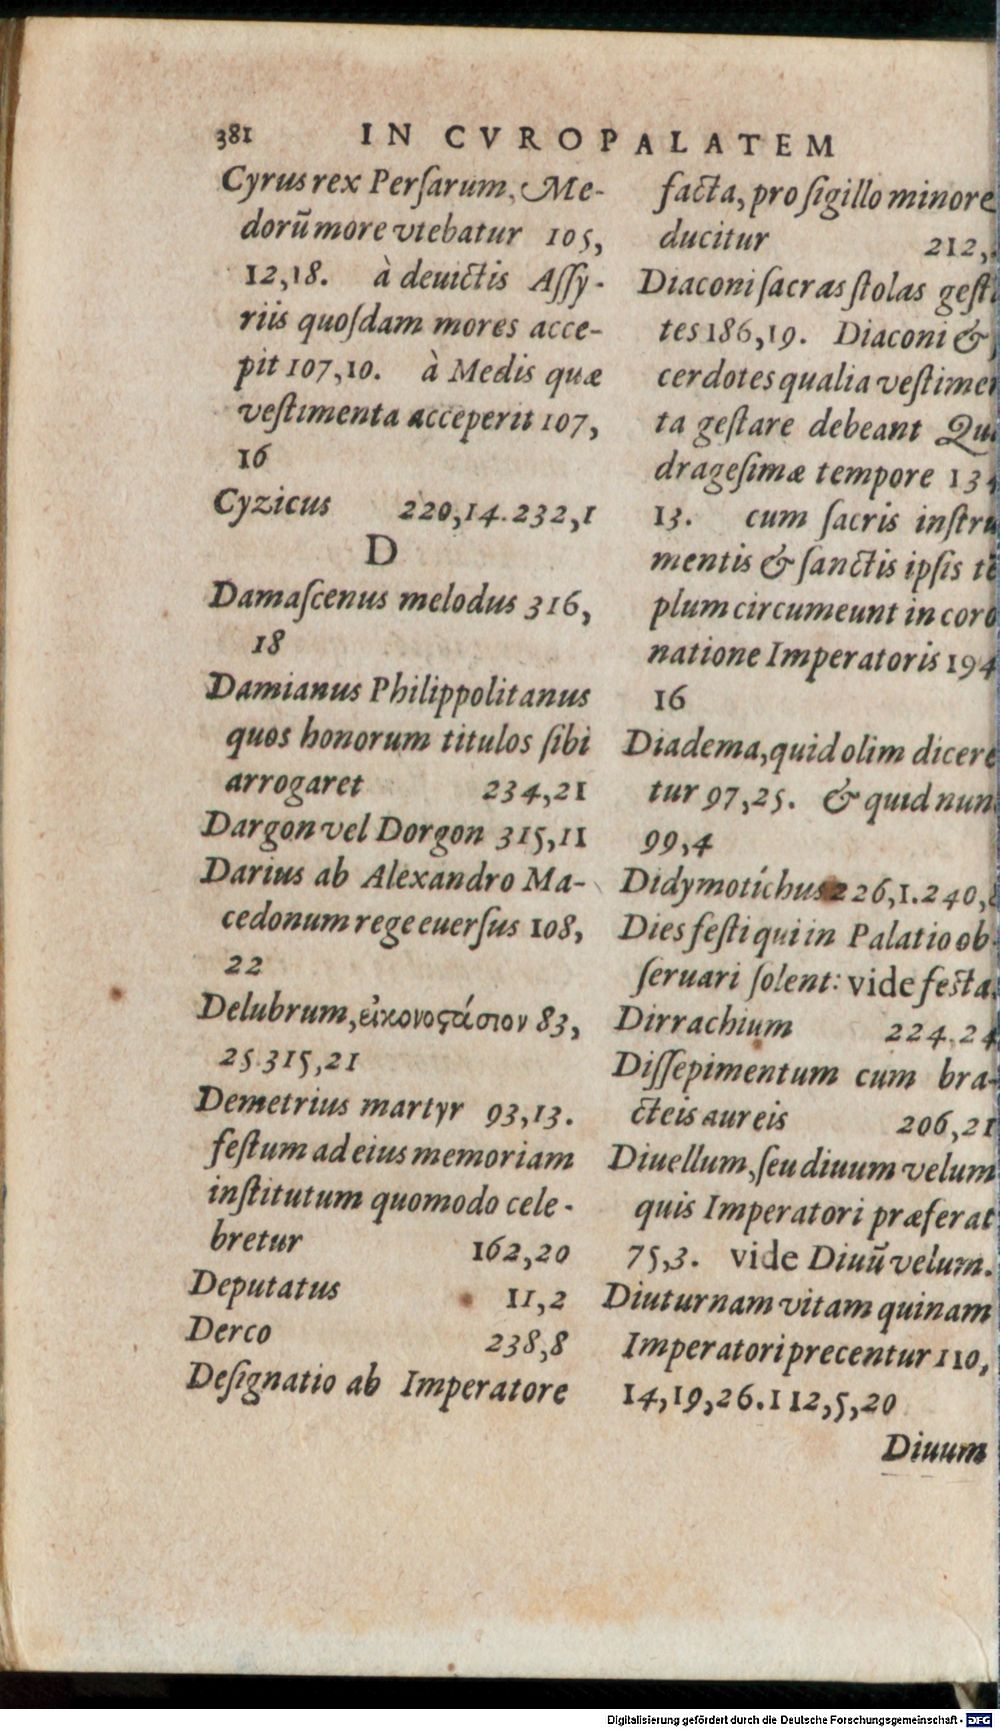 381 IN CVROPALATEM
Cyrus rex Perſarum, Me-
dorũ more vtebatur 105,
12,18. à deuictis Aſſy-
riis quoſdam mores acce-
pit 107,10. à Medis quæ
veſtimenta acceperit 107,
16
Cyzicus 220,14.232,1
D
Damaſcenus melodus 316,
18
Damianus Philippolitanus
quos honorum titulos ſibi
arrogaret 234,21
Dargon vel Dorgon 315,11
Darius ab Alexandro Ma-
cedonum rege euerſus 108,
22
Delubrum, εἰκονοϛάσιον 83,
25.315,21
Demetrius martyr 93,13.
feſtum ad eius memoriam
inſtitutum quomodo cele-
bretur 162,20
Deputatus 11,2
Derco 238,8
Deſignatio ab Imperatore
facta, pro ſigillo minore
ducitur 212,
Diaconi ſacras ſtolas geſt
tes 186,19. Diaconi &
cerdotes qualia veſtimen
ta geſtare debeant Qu
drageſimæ tempore 134
13. cum ſacris inſtru
mentis & ſanctis ipſis tẽ
plum circumeunt in coro
natione Imperatoris 194
16
Diadema, quid olim dicere
tur 97,25. & quid nun
99,4
Didymotíchus 226,1.240,
Dies feſti qui in Palatio ob-
ſeruari ſolent: vide feſta.
Dirrachium 224.24
Diſſepimentum cum bra-
cteis aureis 206,21
Diuellum, ſeu diuum velum
quis Imperatori præferat
75,3. vide Diuũ velum.
Diuturnam vitam quinam
Imperatori precentur 110,
14,19,26.112,5,20
Diuum
Digitalisierung gefördert durch die Deutsche Forschungsgemeinschaft - DFG